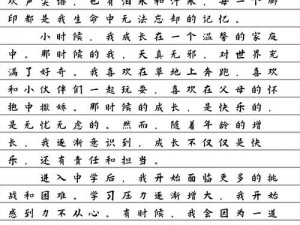 欢声笑语，也有泪水和汗水，每一个脚
印都是我生命中无法忘却的记忆。
小时候，我成长在一个温馨的家庭
中。那时候的我，天真无邪，对世界充
满了好奇。我喜欢在草地上奔跑，喜欢
和小伙伴们一起玩耍，喜欢在父母的怀
抱中撒娇。那时候的成长，是快乐的，
是无忧无虑的。然而，随着年龄的增
长，我逐渐意识到，成长不仅仅是快
乐，还有责任和担当。
进入中学后，我开始面临更多的挑
战和困难。学习压力逐渐增大，我开始
感到力不从心。有时候，我会因为一道